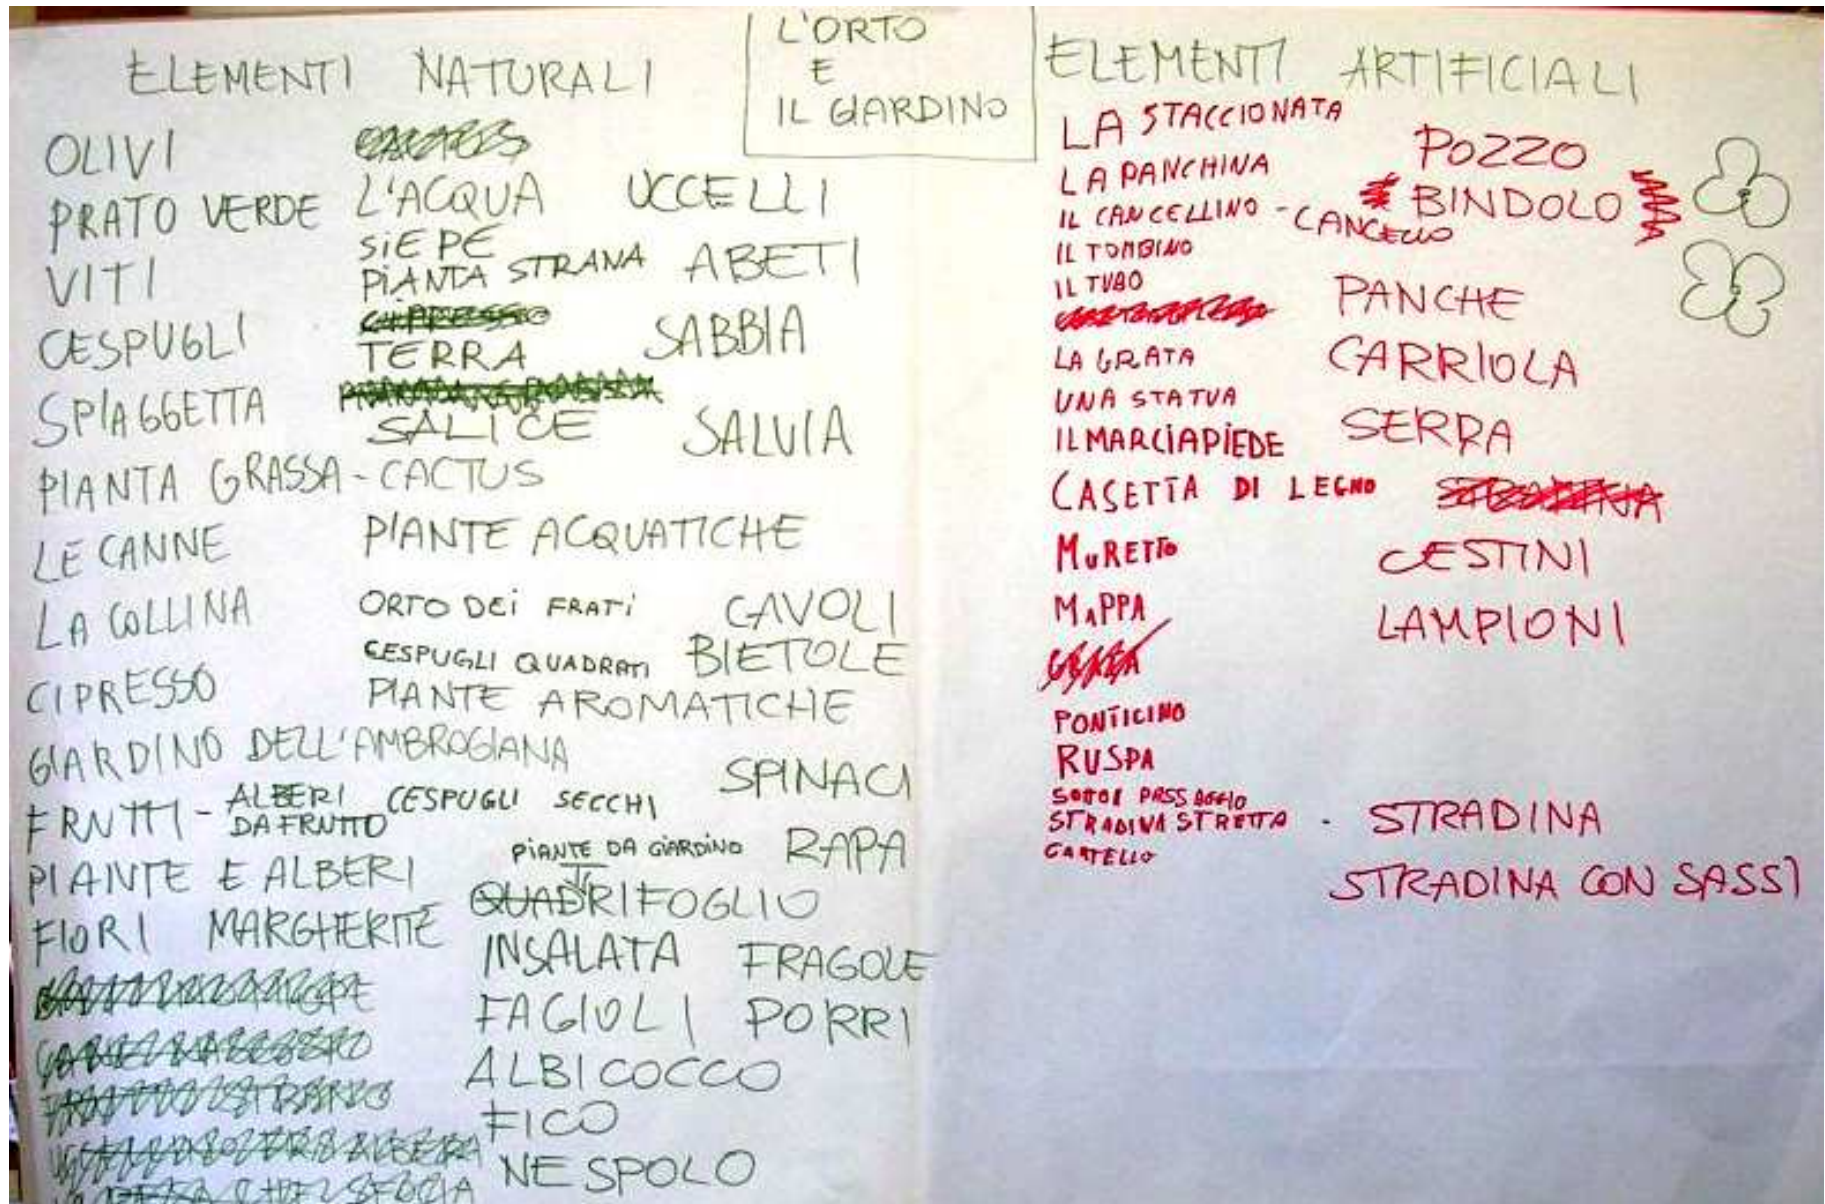 L'ORTO
E
IL GIARDINO
ELEMENTI NATURALI
OLIVI
PRATO VERDE
VITI
CESPUGLI
SPIAGGETTA
PIANTA GRASSA - CACTUS
LE CANNE
LA COLLINA
CIPRESSO
GIARDINO DELL'AMBROGIANA
FRUTTI - ALBERI DA FRUTTO
PIANTE E ALBERI
FIORI MARGHERITE
L'ACQUA
SIEPE
PIANTA STRANA
CIPRESSO
TERRA
SALICE
PIANTE ACQUATICHE
ORTO DEI FRATI
CESPUGLI QUADRATI
PIANTE AROMATICHE
CESPUGLI SECCHI
PIANTE DA GIARDINO
T
QUADRIFOGLIO
INSALATA
FAGIOLI
ALBICOCCO
FICO
NESPOLO
UCCELLI
ABETI
SABBIA
SALVIA
CAVOLI
BIETOLE
SPINACI
RAPA
FRAGOLE
PORRI
ELEMENTI ARTIFICIALI
LA STACCIONATA
LA PANCHINA
IL CANCELLINO - CANCELLO
IL TOMBINO
IL TUBO
LA GRATA
UNA STATUA
IL MARCIAPIEDE
CASETTA DI LEGNO
MURETTO
MAPPA
PONTICINO
RUSPA
SOTTOPASSAGGIO
STRADINA STRETTA - STRADINA
CARTELLO
POZZO
BINDOLO
PANCHE
CARRIOLA
SERRA
STRADINA
CESTINI
LAMPIONI
STRADINA CON SASSI